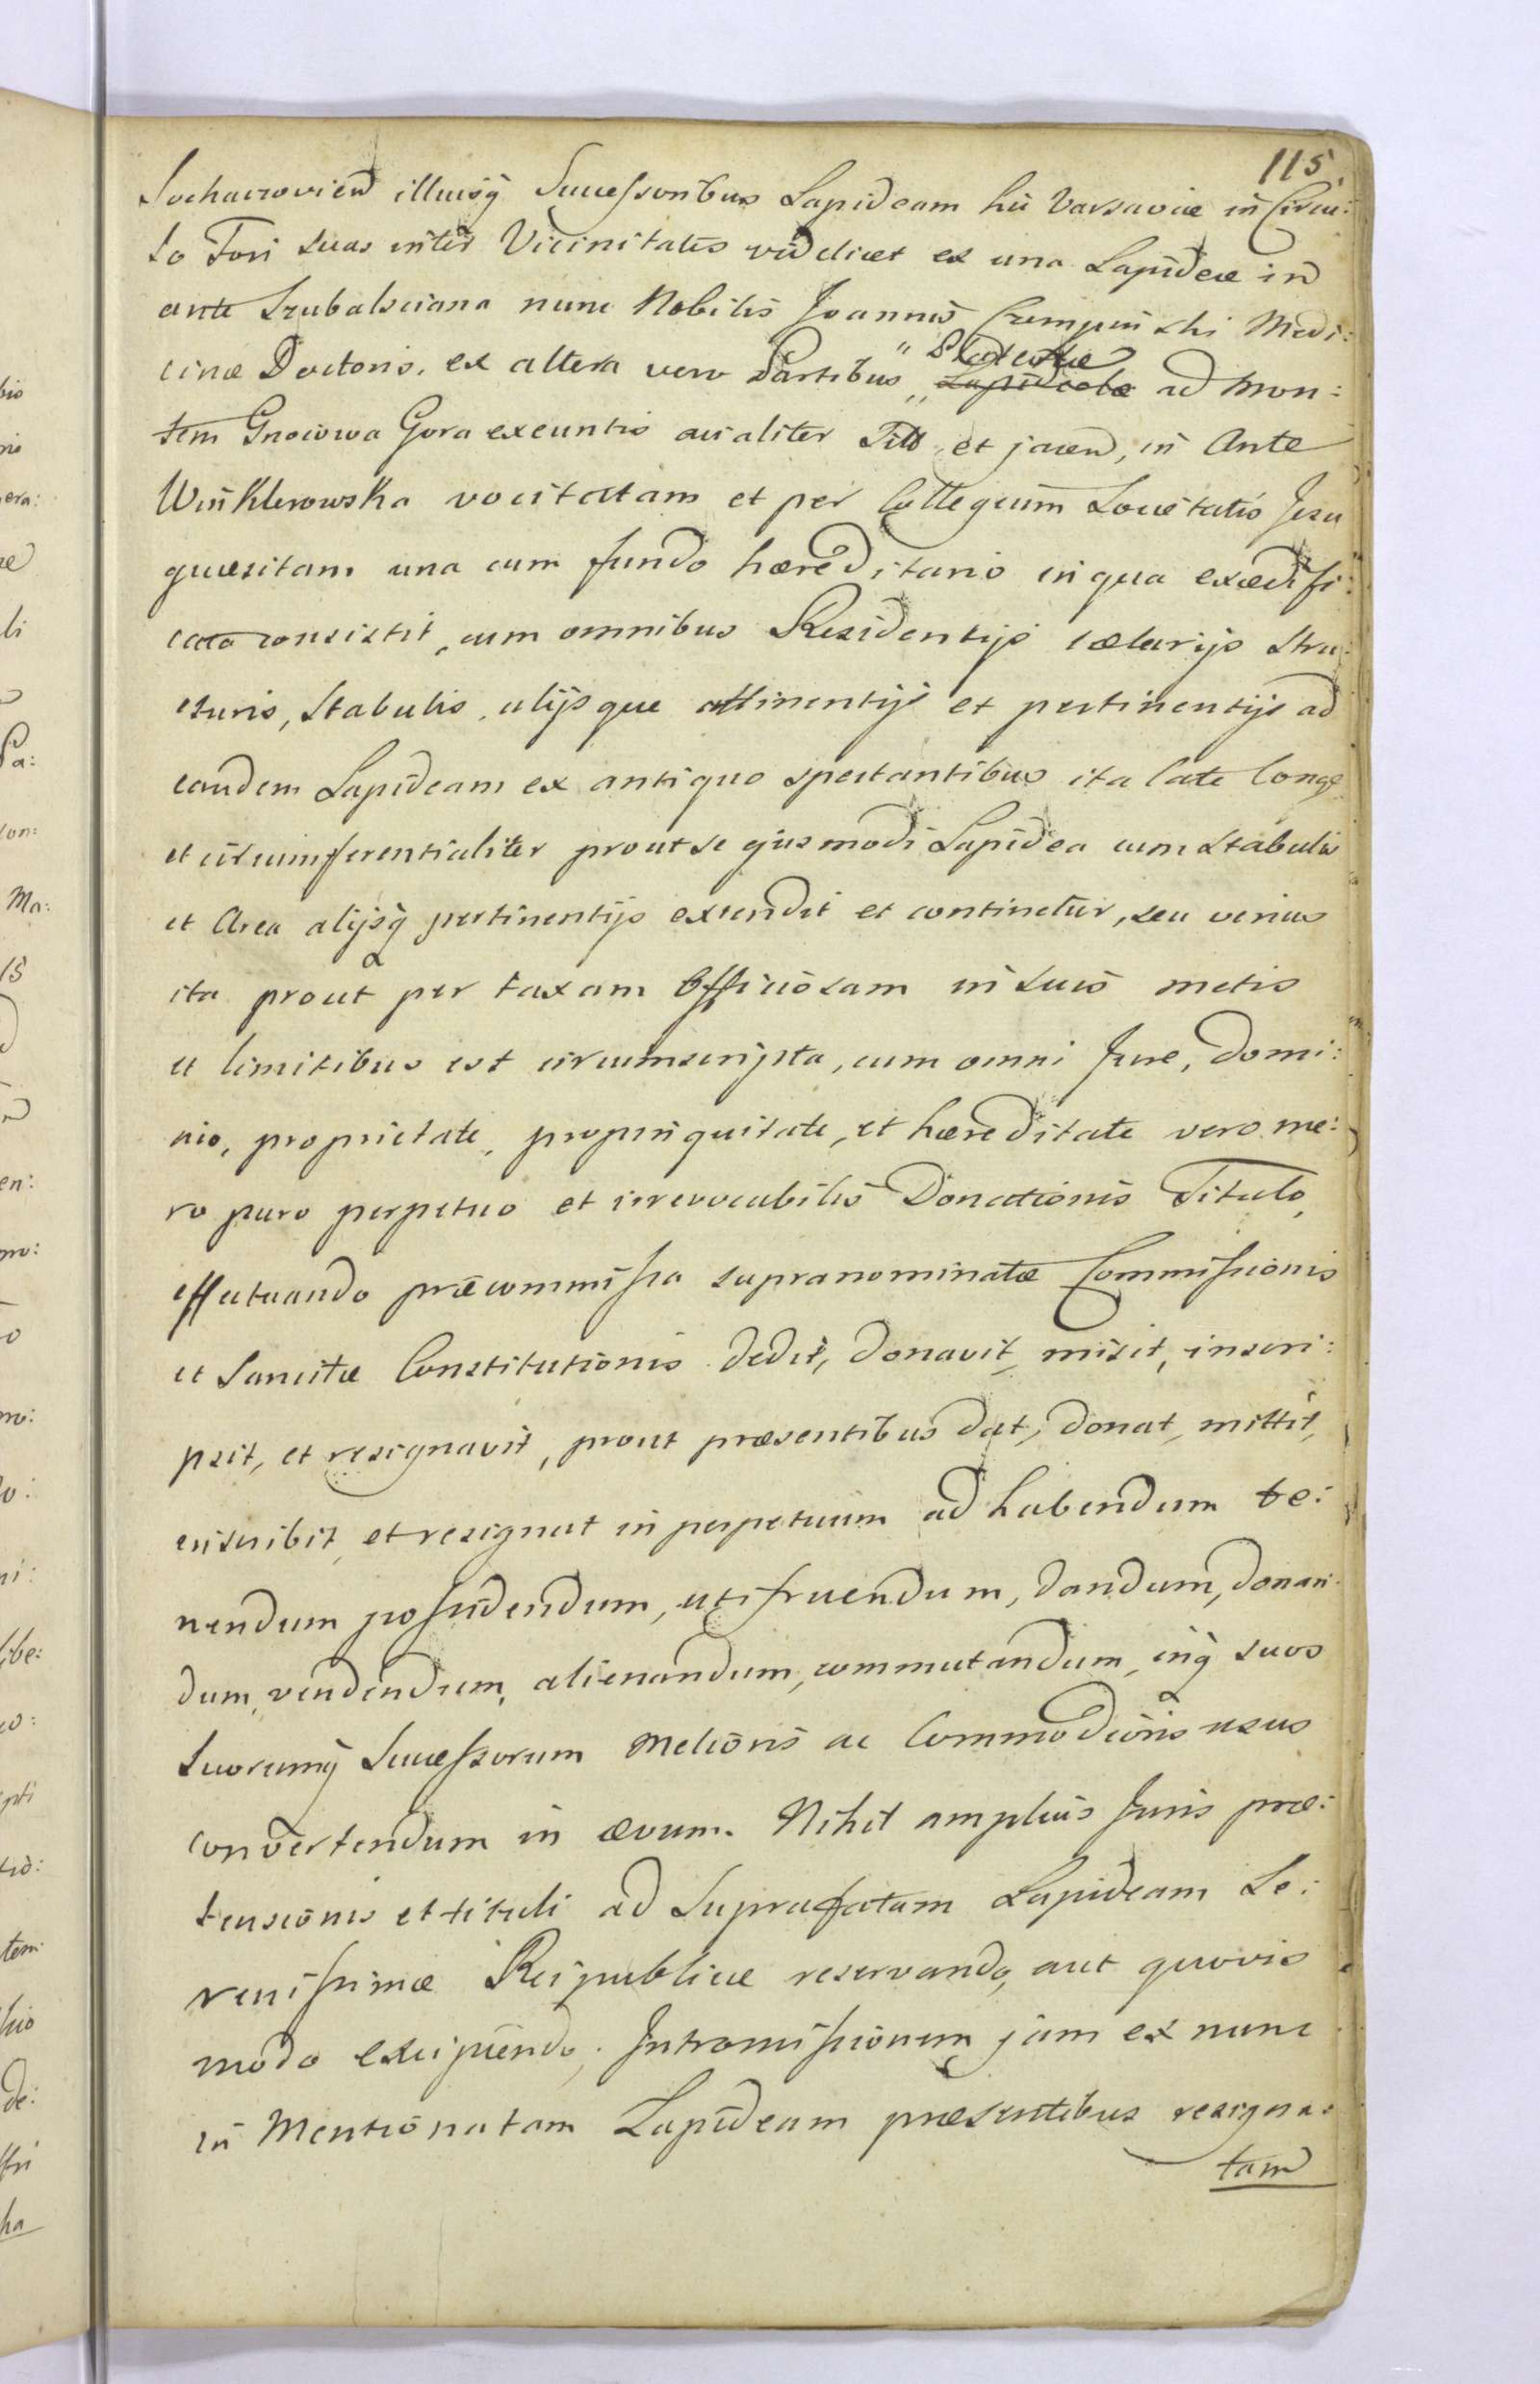 115.
Sochaczovien illiusq̃ Succeſsoribus Lapideam hic Varsaviæ in Circu:
lo Fori suas inter Vicinitates videlicet ex una Lapideæ in
ante Szubalsciana nunc Nobilis Joannis Czempinski Medi:
cinæ Doctoris, ex altera vero Partibus „ Plateolæ
Lapideolæ ad mon:
tem Gnoiowa Gora exeuntis acialiter Sitt et jacen, in Ante
Winklerowska vocitatam et per Collegium Societatis Jesu
quæsitam una cum fundo hæreditario in qua exædifi:
cata consistit, cum omnibus Residentijs cælarijs Stru:
cturis, Stabulis, alijsque attinentijs et pertinentijs ad
eandem Lapideam ex antiquo spectantibus ita late longe
et circumferentialiter prout se ejusmodi Lapidea cum stabulis
et Area alijsq̃ pertinentijs extendit et continetur, seu verius
ita prout per taxam Officiosam in suis metis
et limitibus est circumscripta, cum omni Jure, domi:
nio, proprietate, propinquitate, et hæreditate vero me:
ro puro perpetuo et irrevocabilis Donationis Titulo,
effectuando præcommiſsa supranominatæ Commiſsionis
et Sancitæ Constitutionis dedit, donavit, misit, inscri:
psit, et resignavit, prout præsentibus dat, donat, mittit,
inscribit, et resignat in perpetuum ad habendum te:
nendum poſsidendum, utifruendum, dandum, donan:
dum, vendendum, alienandum, commutandum, inq̃ suos
Suorumq̃ Succeſsorum melioris ac Commodioris usus
convertendum in ævum. Nihil amplius Juris præ:
tensionis et tituli ad Suprafatam Lapideam Se:
reniſsimæ Reipublicæ reservando, aut quovis
modo excipiendo; Intromiſsionem jam ex nunc
in Mentionatam Lapideam præsentibus resigna:
tam